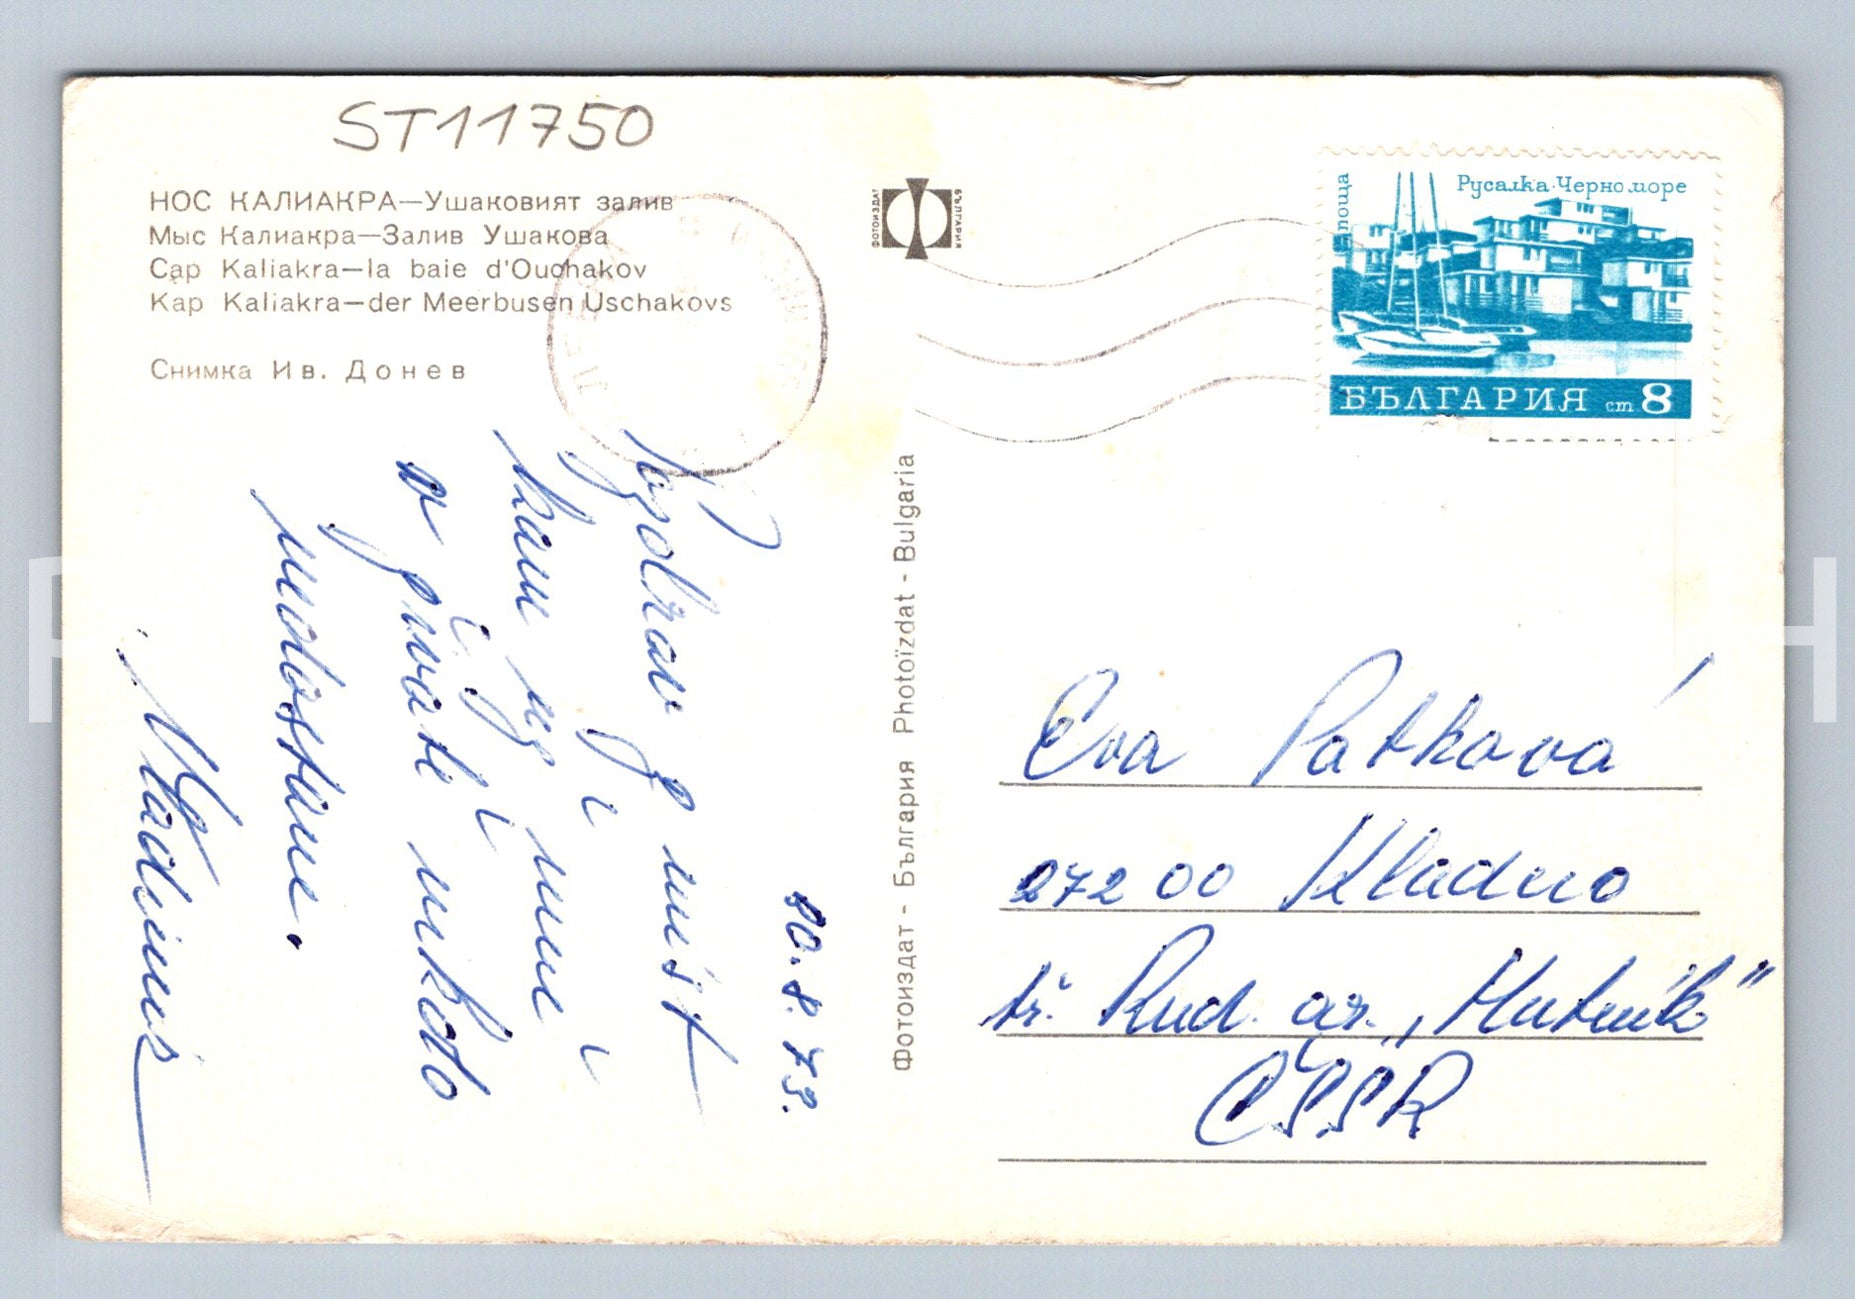 ST11750
НОС КАЛИАКРА—Ушаковият залив
Мыс Калиакра—Залив Ушакова
Cap Kaliakra—la baie d'Ouchakov
Kap Kaliakra—der Meerbusen Uschakovs
Снимка Ив. Донев
ФОТОИЗДАТ
БЪЛГАРИЯ
Русалка·Черно море
поща
БЪЛГАРИЯ ст 8
Фотоиздат - България Photoïzdat - Bulgaria
8. 73.
Pozdrav z míst
kam už
a právě nikdo
nedostane.
Vladimír
Eva Patková
272 00 Kladno
tř. Rud. arm. „Hutník"
ČSSR